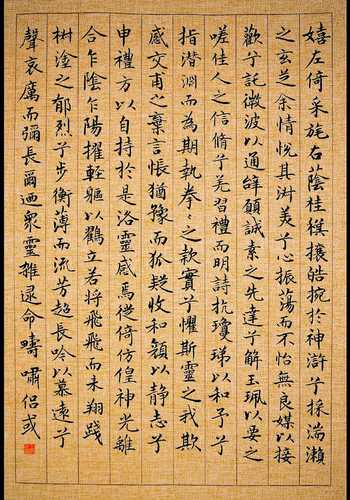 嬉左倚采旄右蔭桂旗攘皓捥於神滸兮採湍瀨
之玄芝余情悅其淑美兮心振蕩而不怡無良媒以接
歡兮託微波以通辭願誠素之先達兮解玉珮以要之
嗟佳人之信脩兮羌習禮而明詩抗瓊珶以和予兮
指潛淵而為期執拳〻之款實兮懼斯靈之我欺
感交甫之棄言悵猶豫而狐疑收和顏以静志兮
申禮方以自持於是洛靈感焉徙倚仿偟神光離
合乍陰乍陽擢輕軀以鶴立若将飛飛而未翔踐
椒塗之郁烈兮步衡薄而流芳超長吟以慕遠兮
聲哀厲而彌長爾迺衆靈雜遝命疇嘯侶或